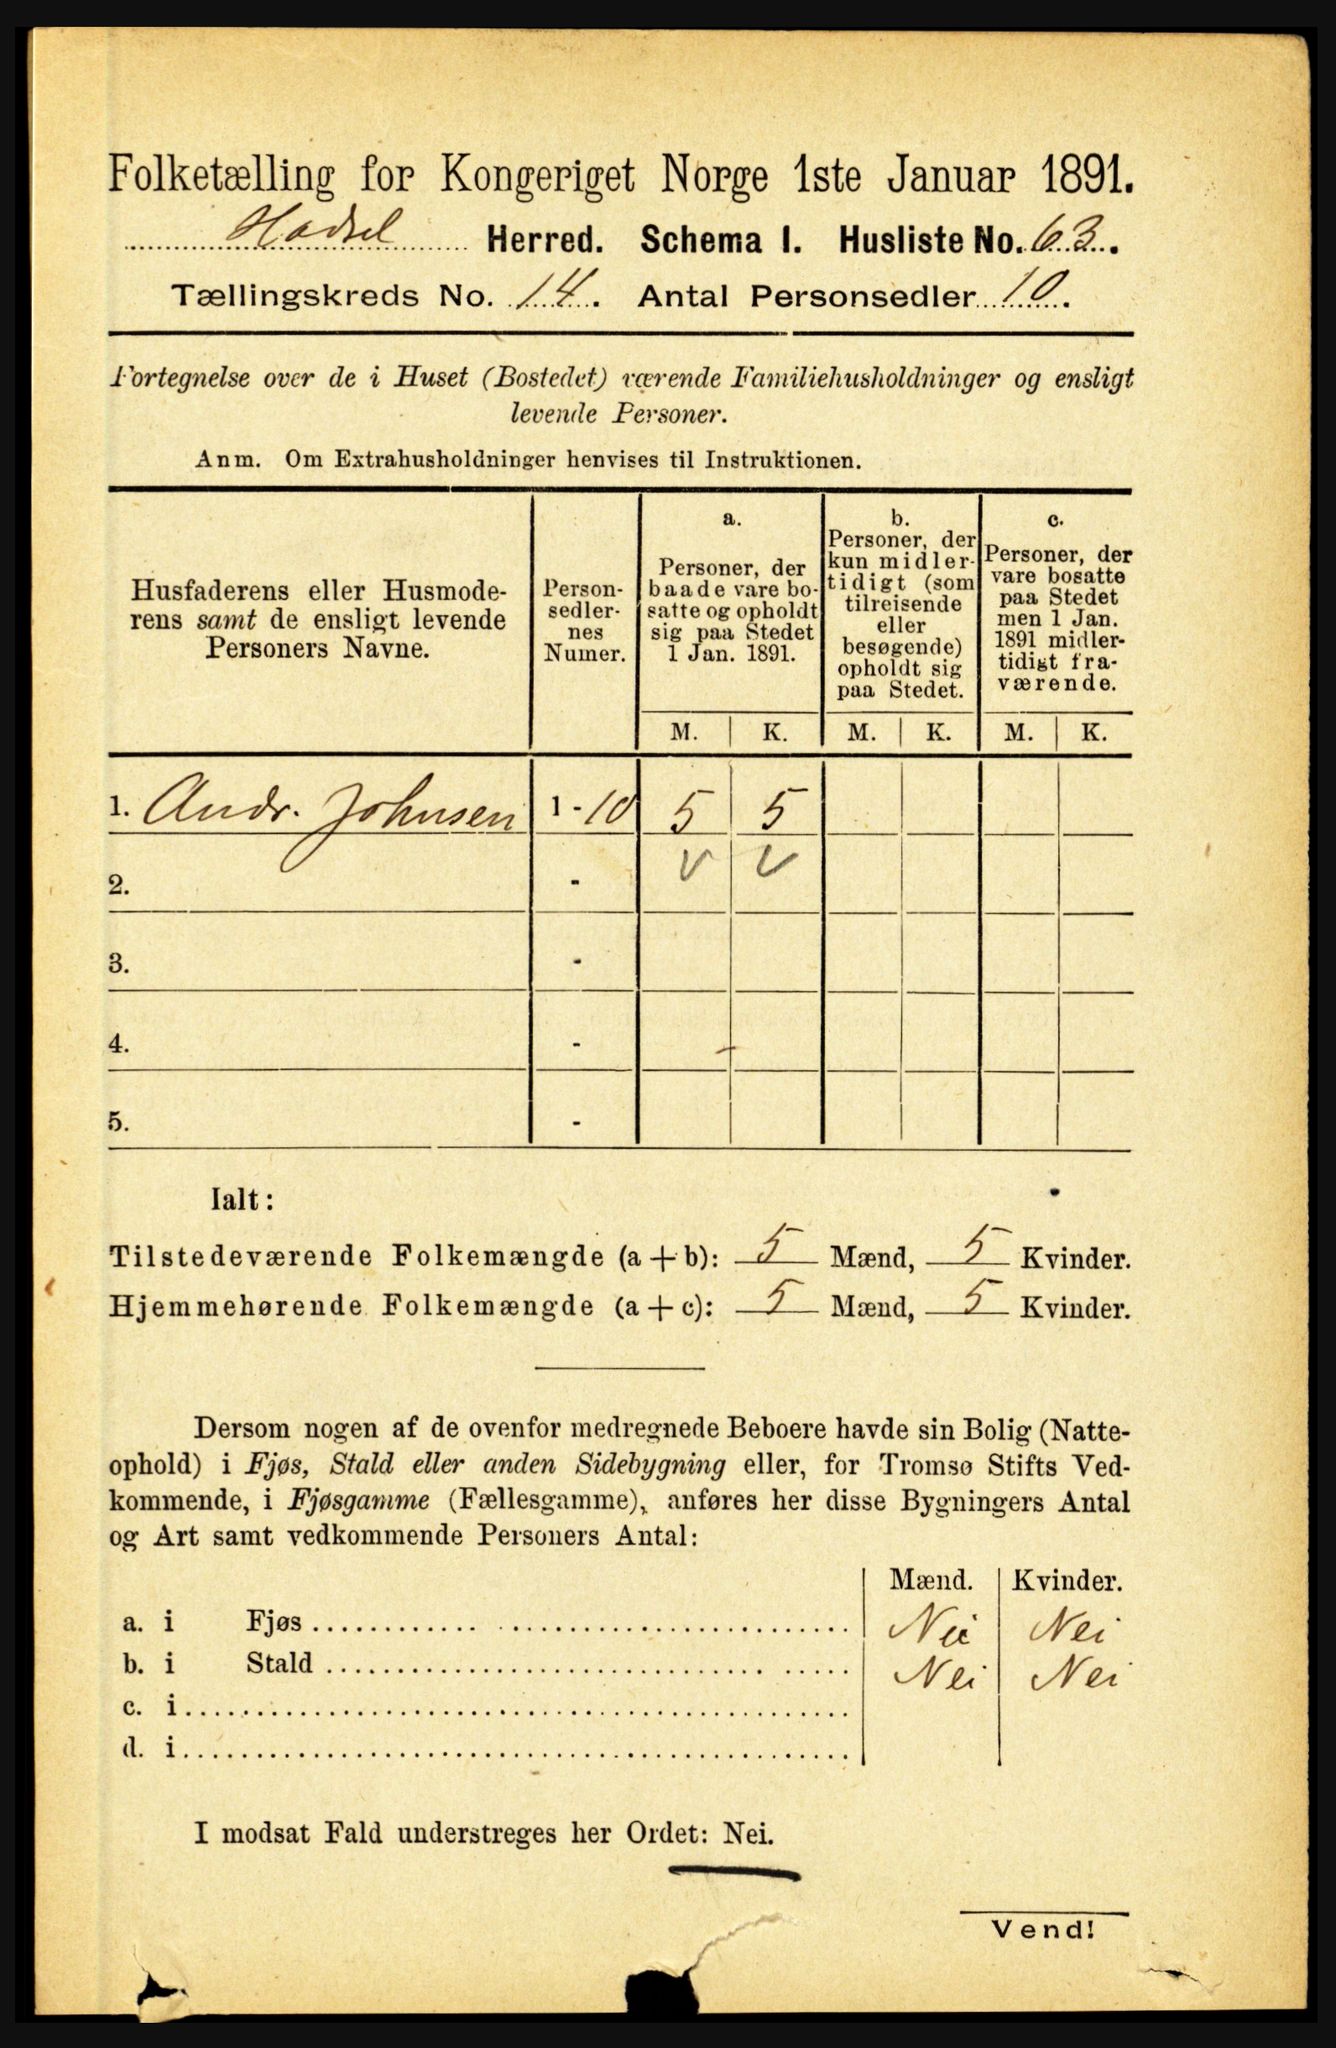 Folketælling for Kongeriget Norge 1ste Januar 1891.
Hadsel Herred. Schema I. Husliste No. 63.
Tællingskreds No. 14. Antal Personsedler 10.
Fortegnelse over de i Huset (Bostedet) værende Familiehusholdninger og ensligt
levende Personer.
Anm. Om Extrahusholdninger henvises til Instruktionen.
Husfaderens eller Husmode-
rens samt de ensligt levende
Personers Navne.
Person-
sedler-
nes
Numer.
a.
Personer, der
baade vare bo-
satte og opholdt
sig paa Stedet
1 Jan. 1891.
b.
Personer, der
kun midler-
tidigt (som
tilreisende
eller
besøgende)
opholdt sig
paa Stedet.
c.
Personer, der
vare bosatte
paa Stedet
men 1 Jan.
1891 midler-
tidigt fra-
værende.
M. K. M. K. M. K.
1. Andr. Johnsen 1 - 10 5 5
2. -
3. -
4. -
5. -
Ialt:
Tilstedeværende Folkemængde (a + b): 5 Mænd, 5 Kvinder.
Hjemmehørende Folkemængde (a + c): 5 Mænd, 5 Kvinder.
Dersom nogen af de ovenfor medregnede Beboere havde sin Bolig (Natte-
ophold) i Fjøs, Stald eller anden Sidebygning eller, for Tromsø Stifts Ved-
kommende, i Fjøsgamme (Fællesgamme), anføres her disse Bygningers Antal
og Art samt vedkommende Personers Antal:
Mænd. Kvinder.
a. i Fjøs Nei Nei
b. i Stald Nei Nei
c. i
d. i
I modsat Fald understreges her Ordet: Nei.
Vend!